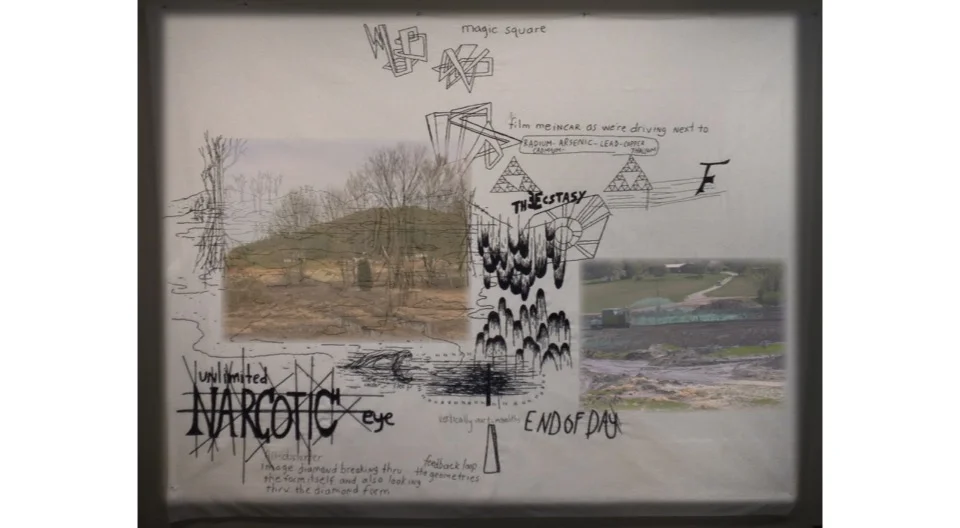 magic square
film me IN CAR as we're driving next to
RADIUM - ARSENIC - LEAD - COPPER
CADMIUM
THE ECSTASY
F
unlimited
NARCOTIC
eye
END OF DAY
image diamond breaking thru
the form itself and also looking
thru the diamond form
feedback loop
the geometries